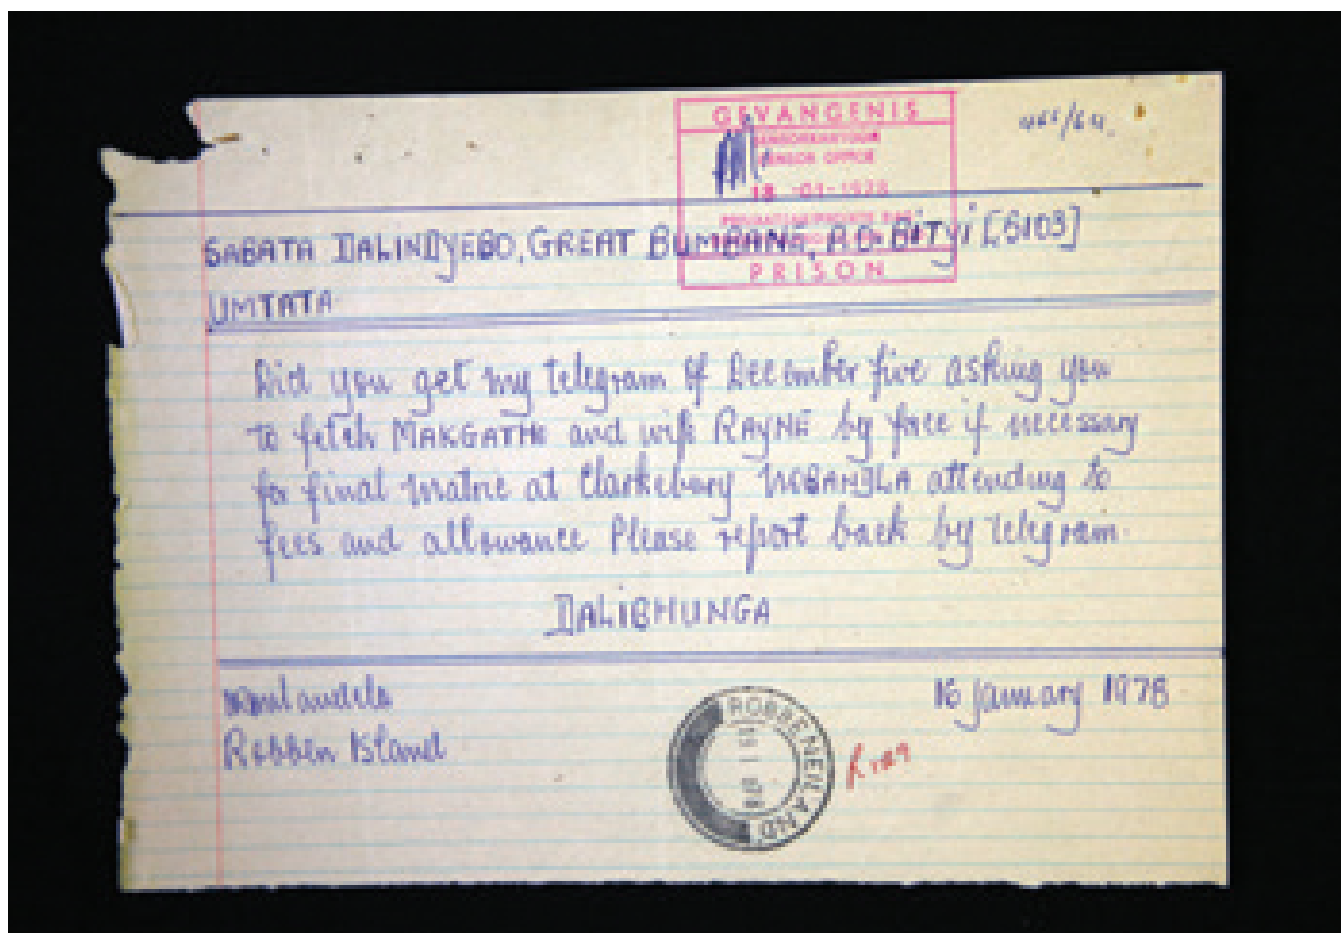 GEVANGENIS
466/64.
SENSORKANTOOR
CENSOR OFFICE
18 -01- 1978
PRISON
SABATA DALINDYEBO, GREAT BUMBANE, P.O. BITYI [5103]
UMTATA
Did you get my telegram of December five asking you
to fetch MAKGATHO and wife RAYNE by force if necessary
for final matric at Clarkebury NOBANDLA attending to
fees and allowance Please report back by telegram.
DALIBHUNGA
Robben Island
16 January 1978
ROBBENEILAND
19 I 1978